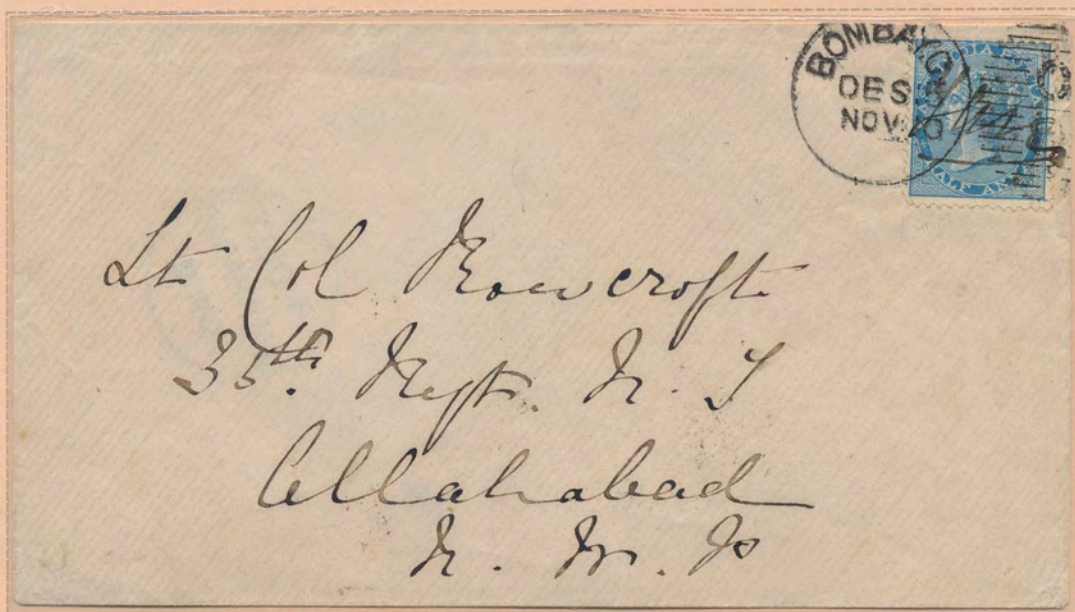 BOMBAY
DES 5
NOV 10
INDIA
HALF ANNA
Lt Col Rowcroft
35th Regt. N. I
Allahabad
N. W. P